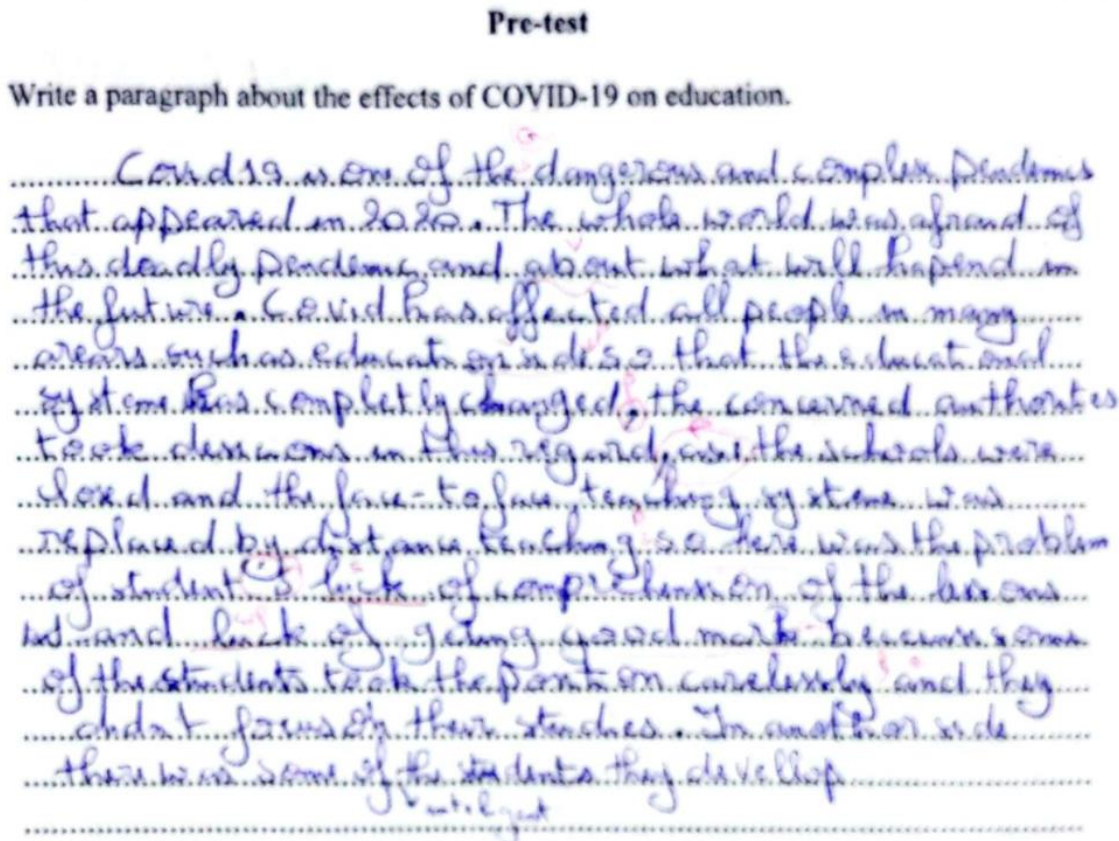 Pre-test
Write a paragraph about the effects of COVID-19 on education.
Covid 19 is one of the dangerous and complex Pendemics
that appeared in 2020. The whole world was afraid of
this deadly Pendemic, and about what will hapend in
the future. Covid has affected all people in many
arears such as education side so that the educational
systeme has completly changed, the concerned authorites
took desicions in this regard, the schools were
closed and the face-to face teaching systeme was
replaced by distance teaching so here was the problem
of student's luck of comprehension of the lessons
and luck of geting good mark becaus some
of the students took the carelessly and they
didn't focus on their studies. In another side
there was some of the students they devellop
inteligent